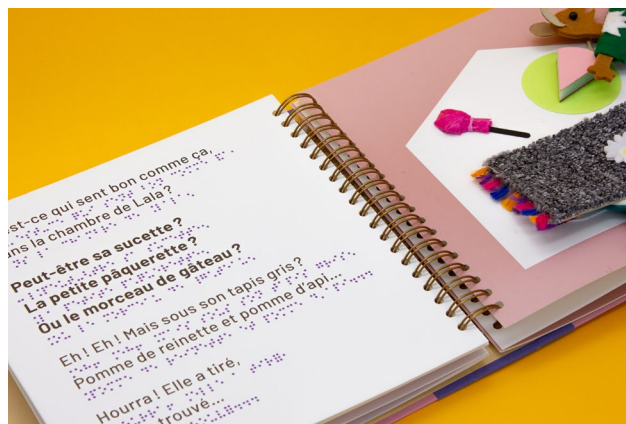 est-ce qui sent bon comme ça,
dans la chambre de Lala ?
Peut-être sa sucette ?
La petite pâquerette ?
Ou le morceau de gâteau ?
Eh ! Eh ! Mais sous son tapis gris ?
Pomme de reinette et pomme d'api...
Hourra ! Elle a tiré,
trouvé...